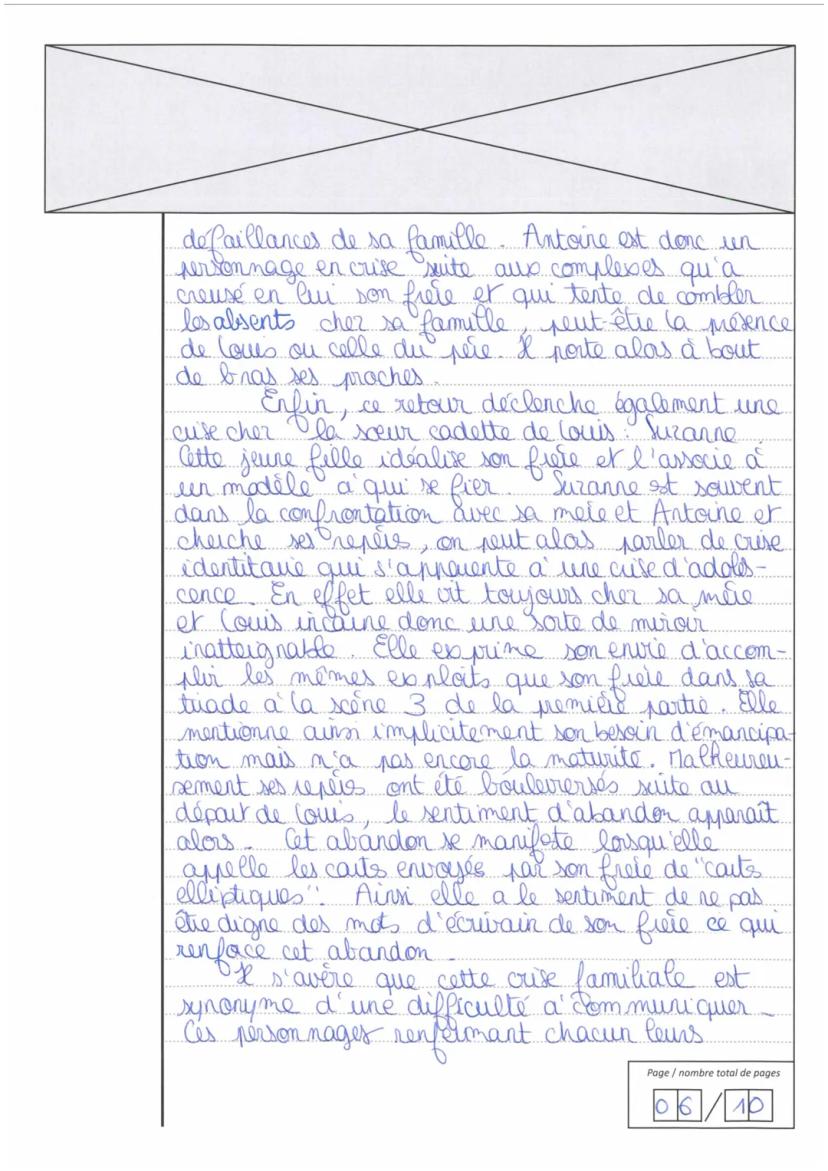 défaillances de sa famille. Antoine est donc un
personnage en crise suite aux complexes qu'a
creusé en lui son frère et qui tente de combler
les absents chez sa famille, peut-être la présence
de Louis ou celle du père. Il porte alors à bout
de bras ses proches.
Enfin, ce retour déclenche également une
crise chez la sœur cadette de Louis : Suzanne.
Cette jeune fille idéalise son frère et l'associe à
un modèle à qui se fier. Suzanne est souvent
dans la confrontation avec sa mère et Antoine et
cherche ses repères, on peut alors parler de crise
identitaire qui s'apparente à une crise d'adoles-
cence. En effet elle vit toujours chez sa mère
et Louis incarne donc une sorte de miroir
inatteignable. Elle exprime son envie d'accom-
plir les mêmes exploits que son frère dans sa
tirade à la scène 3 de la première partie. Elle
mentionne ainsi implicitement son besoin d'émancipa-
tion mais n'a pas encore la maturité. Malheureu-
sement ses repères ont été bouleversés suite au
départ de Louis, le sentiment d'abandon apparaît
alors. Cet abandon se manifeste lorsqu'elle
appelle les cartes envoyées par son frère de "cartes
elliptiques". Ainsi elle a le sentiment de ne pas
être digne des mots d'écrivain de son frère ce qui
renforce cet abandon.
Il s'avère que cette crise familiale est
synonyme d'une difficulté à communiquer.
Ces personnages renfermant chacun leurs
Page / nombre total de pages
06/10